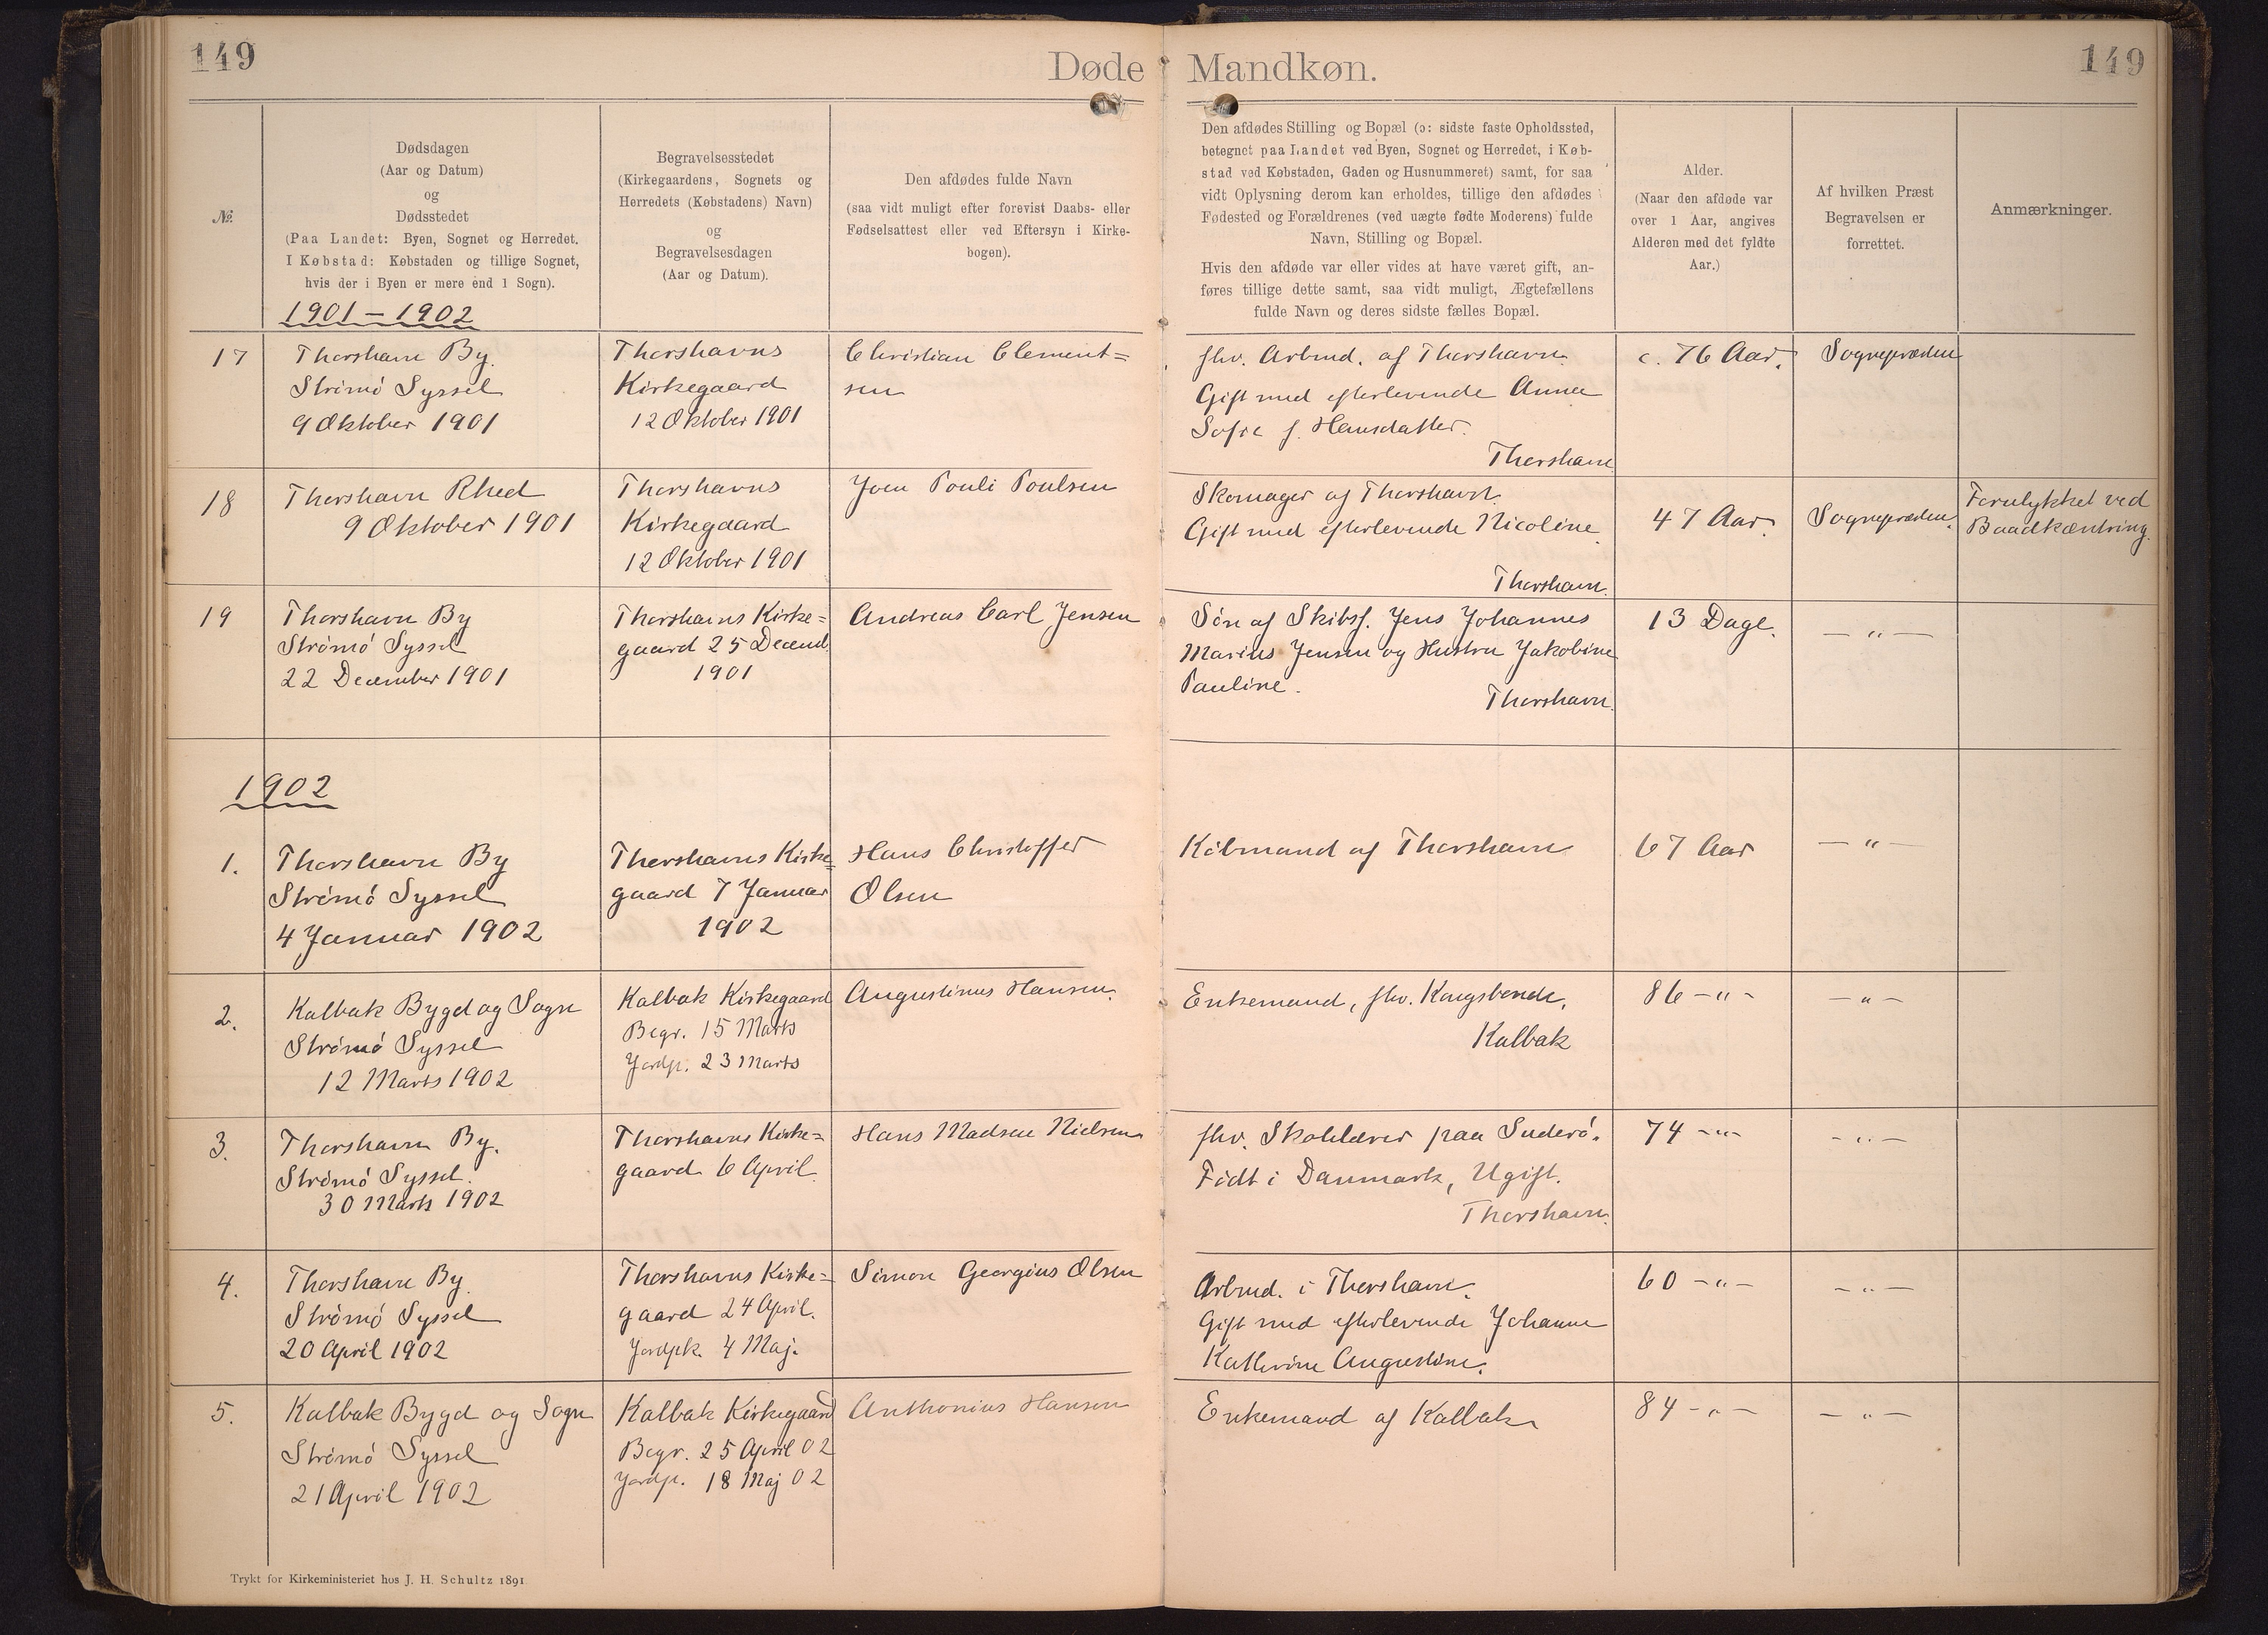 149
Døde Mandkøn.
149
№.
Dødsdagen
(Aar og Datum)
og
Dødsstedet
(Paa Landet: Byen, Sognet og Herredet.
I Købstad: Købstaden og tillige Sognet,
hvis der i Byen er mere end 1 Sogn).
Begravelsesstedet
(Kirkegaardens, Sognets og
Herredets (Købstadens) Navn)
og
Begravelsesdagen
(Aar og Datum).
Den afdødes fulde Navn
(saa vidt muligt efter forevist Daabs- eller
Fødselsattest eller ved Eftersyn i Kirke-
bogen).
Den afdødes Stilling og Bopæl (ɔ: sidste faste Opholdssted,
betegnet paa Landet ved Byen, Sognet og Herredet, i Køb-
stad ved Købstaden, Gaden og Husnummeret) samt, for saa
vidt Oplysning derom kan erholdes, tillige den afdødes
Fødested og Forældrenes (ved uægte fødte Moderens) fulde
Navn, Stilling og Bopæl.
Hvis den afdøde var eller vides at have været gift, an-
føres tillige dette samt, saa vidt muligt, Ægtefællens
fulde Navn og deres sidste fælles Bopæl.
Alder.
(Naar den afdøde var
over 1 Aar, angives
Alderen med det fyldte
Aar.)
Af hvilken Præst
Begravelsen er
forrettet.
Anmærkninger.
1901 – 1902
17
Thorshavn By.
Strömö Syssel
9 Oktober 1901
Thorshavns
Kirkegaard
12 Oktober 1901
Christian Clement=
sen
fhv. Arbmd. af Thorshavn.
Gift med efterlevende Anna
Sofie f. Hansdatter.
Thorshavn
c. 76 Aar.
Sognepræsten
18
Thorshavn Rhed
9 Oktober 1901
Thorshavns
Kirkegaard
12 Oktober 1901
Joen Pouli Poulsen
Skomager af Thorshavn.
Gift med efterlevende Nicoline.
Thorshavn.
47 Aar.
Sognepræsten.
Forulykket ved
Baadkæntring.
19
Thorshavn By
Strömö Syssel
22 December 1901
Thorshavns Kirke=
gaard 25 Decemb.
1901
Andreas Carl Jensen
Sön af Skibsf. Jens Johannes
Marius Jensen og Hustru Jakobine
Pauline.
Thorshavn.
13 Dage.
— „ —
1902
1.
Thorshavn By
Strömö Syssel
4 Januar 1902
Thorshavns Kirke=
gaard 7 Januar
1902
Hans Christoffer
Olsen
Köbmand af Thorshavn
67 Aar
— „ —
2.
Kalbak Bygd og Sogn
Strömö Syssel
12 Marts 1902
Kalbak Kirkegaard
Begr. 15 Marts
Jordp. 23 Marts
Augustinus Hansen.
Enkemand, fhv. Kongsbonde.
Kalbak
86 – „ –
— „ —
3.
Thorshavn By.
Strömö Syssel.
30 Marts 1902
Thorshavns Kirke=
gaard 6 April.
Hans Madsen Nielsen
fhv. Skolelærer paa Suderö.
Födt i Danmark, Ugift.
Thorshavn.
74 – „ –
– „ –
4.
Thorshavn By.
Strömö Syssel
20 April 1902
Thorshavns Kirke=
gaard 24 April.
Jordpk. 4 Maj.
Simon Georgius Olsen
Arbmd. i Thorshavn.
Gift med efterlevende Johanne
Kathrine Augustine.
60 – „ –
– „ –
5.
Kalbak Bygd og Sogn
Strömö Syssel
21 April 1902
Kalbak Kirkegaard
Begr. 25 April 02
Jordp. 18 Maj 02
Anthonius Hansen
Enkemand af Kalbak
84 – „ –
— „ —
Trykt for Kirkeministeriet hos J. H. Schultz 1891